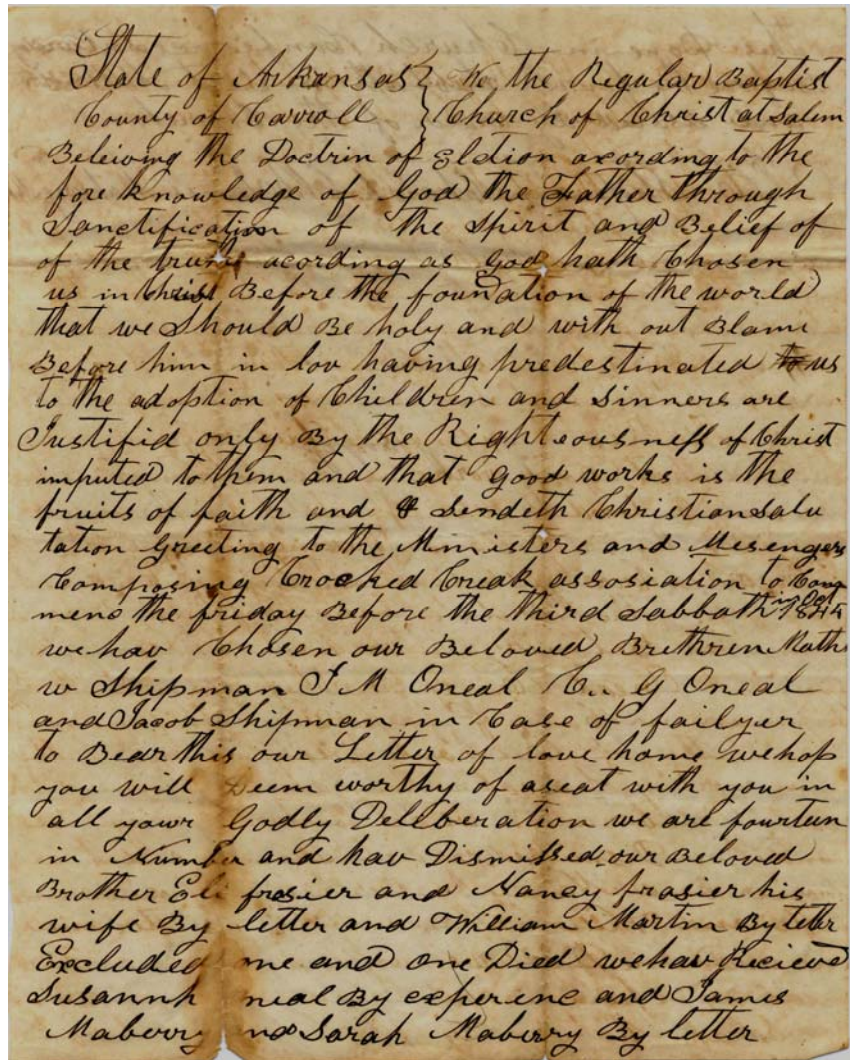 State of Arkansas } We the Regular Baptist
County of Carroll } Church of Christ at Salem
Beleiving the Doctrin of Eldtion acording to the
fore knowledge of God the Father through
Sanctification of the Spirit and Belief of
of the truth acording as God hath Chosen
us in Christ Before the foundation of the world
that we Should Be holy and with out Blame
Before him in lov having predestinated to us
to the adoption of Children and Sinners are
Justifid only By the Righteousness of Christ
imputed to them and that good works is the
fruits of faith and & Sendeth Christian Salu
tation Greeting to the Ministers and Mesengers
Composing Crocked Creak assosiation to Com
menc the friday Before the third Sabbath in Oct
we hav Chosen our Beloved Brethren Math
w Shipman J M Oneal C. G Oneal
and Jacob Shipman in Case of failyer
to Bear this our Letter of love home we hop
you will Deem worthy of a seat with you in
all your Godly Delleberation we are fourteen
in Number and hav Dismissed our Beloved
Brother Eli frasier and Nancy frasier his
wife By letter and William Martin By letter
Excluded me and one Died we hav Recieved
Susannh neal By experenc and James
Maberry nd Sarah Maberry By letter